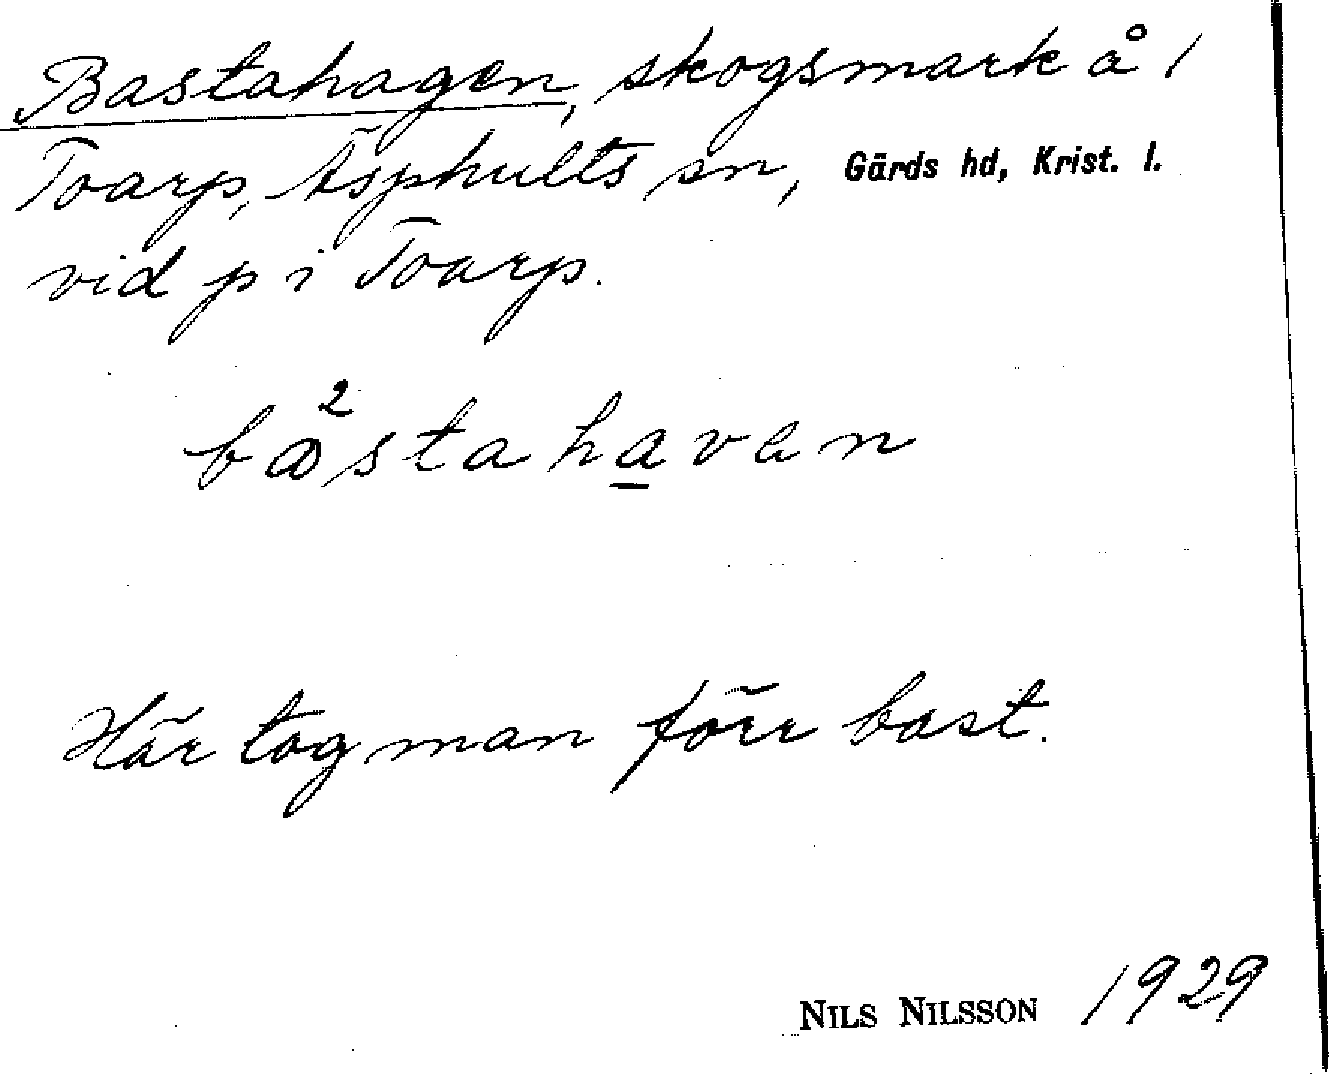 Bastahagen, skogsmark å 1
Toarp, Äsphults sn, Gärds hd, Krist. l.
vid p i Toarp.
bα²stahavan
Här tog man förr bast.
NILS NILSSON 1929